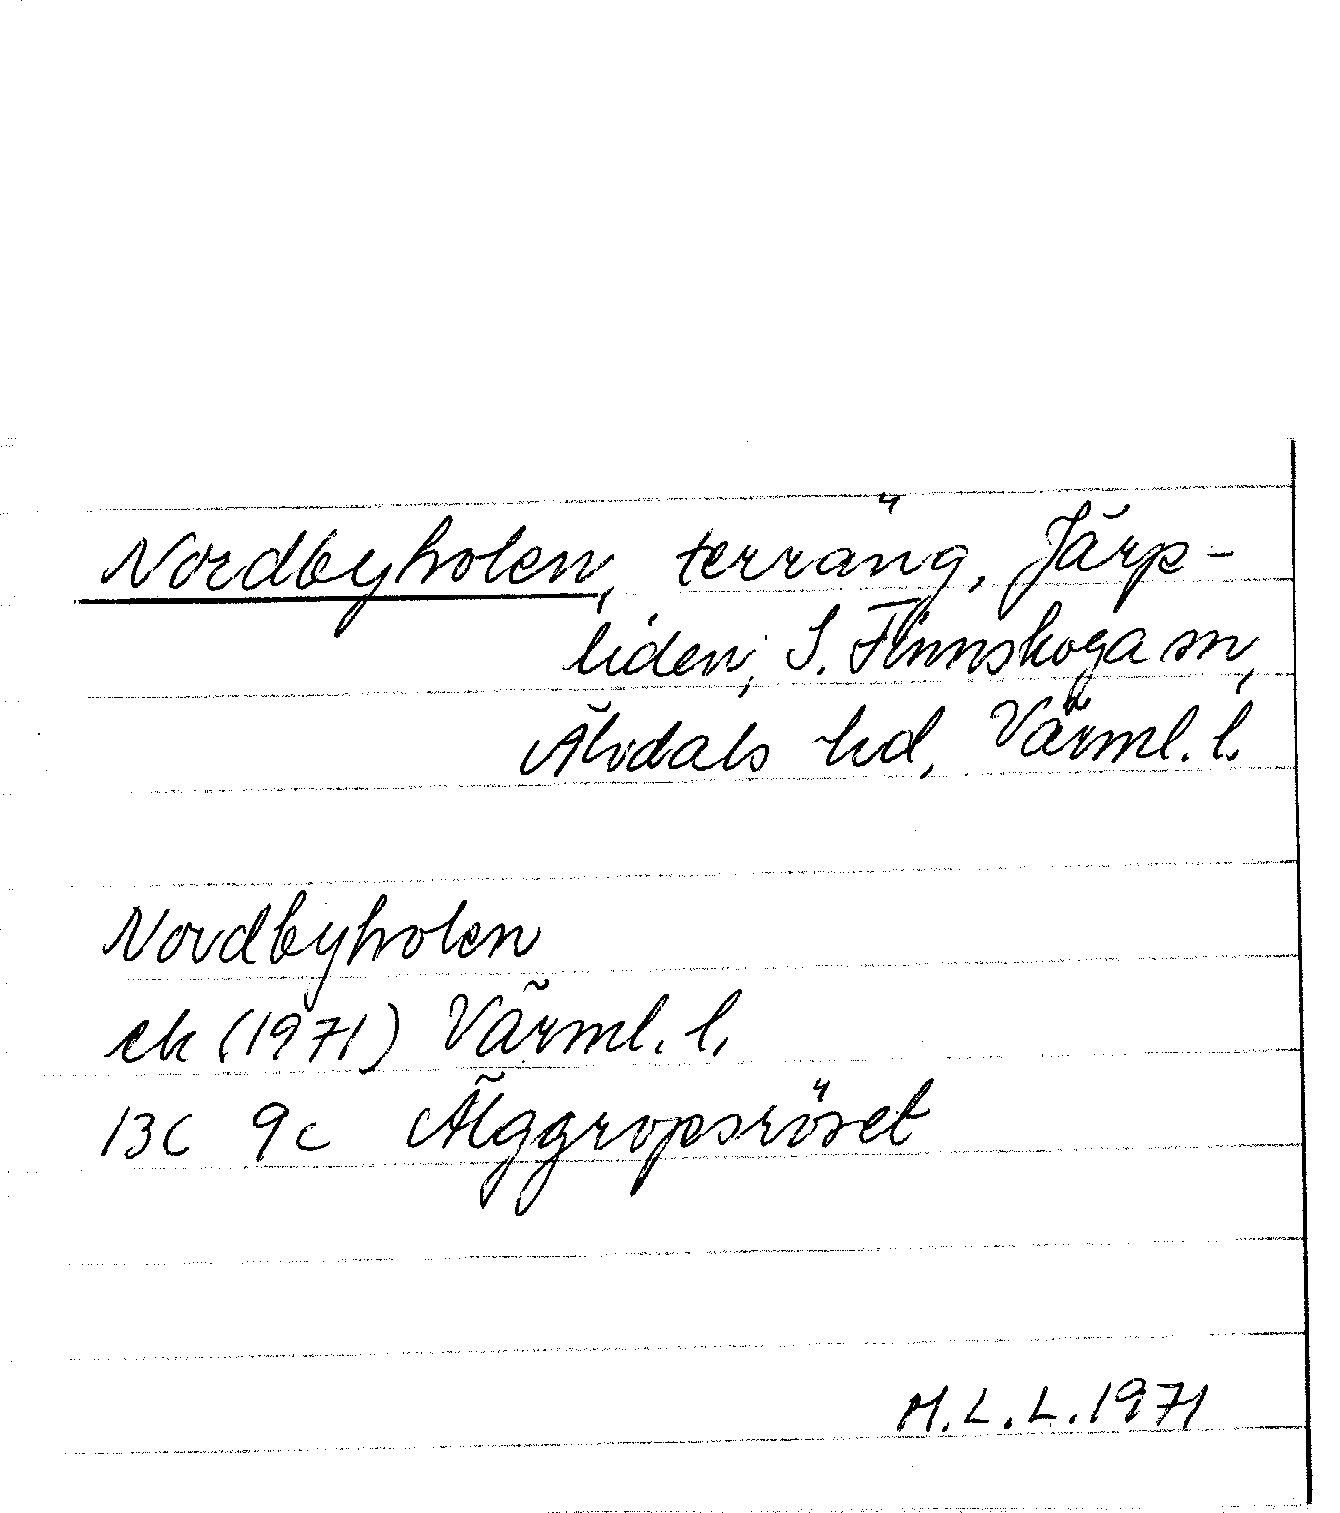 Nordbyholen, terräng, Järp-
liden, S. Finnskoga sn,
Älvdals hd, Värml. l.
Nordbyholen
ek (1971) Värml. l.
13C 9c Älggropsröset
M.L.L. 1971